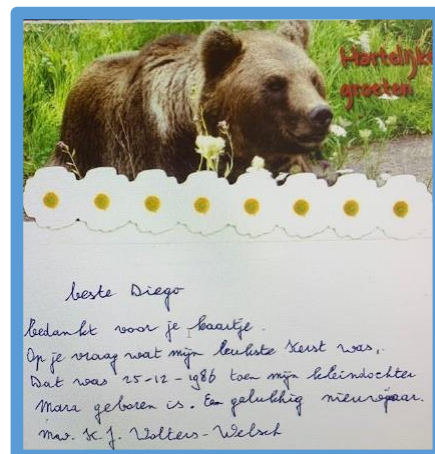 Hartelijke
groeten
beste Diego
bedankt voor je kaartje.
Op je vraag wat mijn leukste Kerst was,
Dat was 25-12-1986 toen mijn kleindochter
Mara geboren is. Een gelukkig nieuwjaar.
mw. K.J. Wolters-Welsch